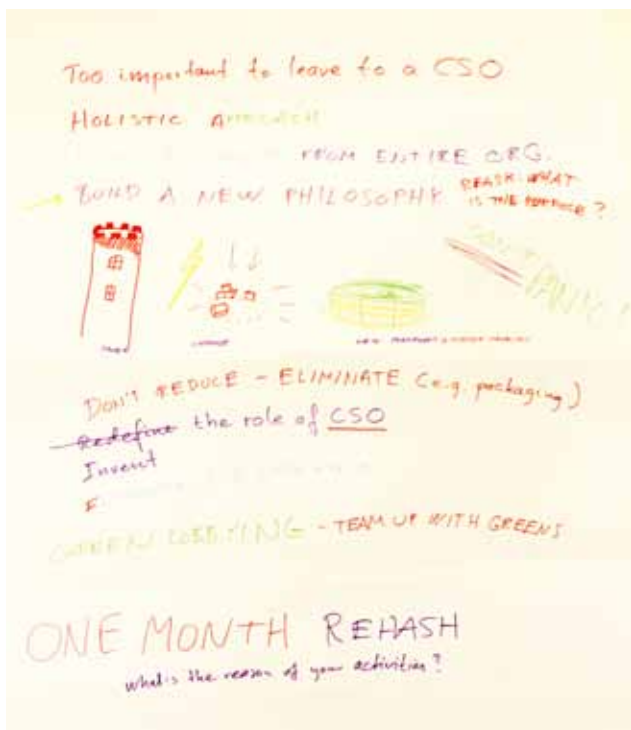 Too important to leave to a CSO
HOLISTIC APPROACH
FROM ENTIRE ORG.
BUILD A NEW PHILOSOPHY
REASK WHAT
IS THE PURPOSE?
DON'T
PANIC!
DON'T REDUCE - ELIMINATE (e.g. packaging)
Redefine the role of CSO
Invent
LOBBYING - TEAM UP WITH GREENS
ONE MONTH REHASH
what is the reason of your activities?